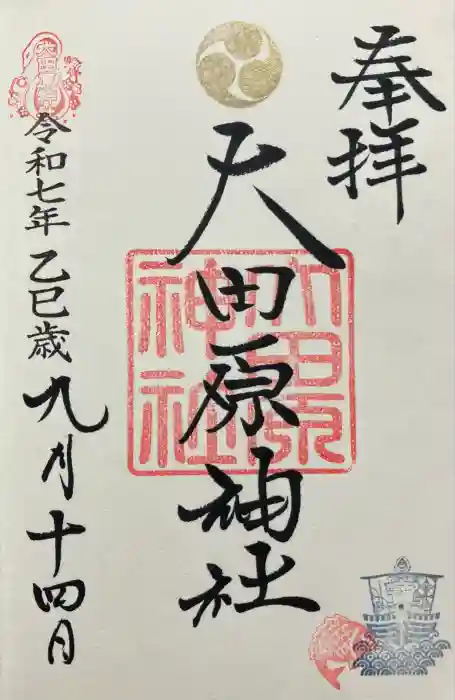 奉拝
大田原神社
令和七年乙巳歳九月十四日
大田原神社